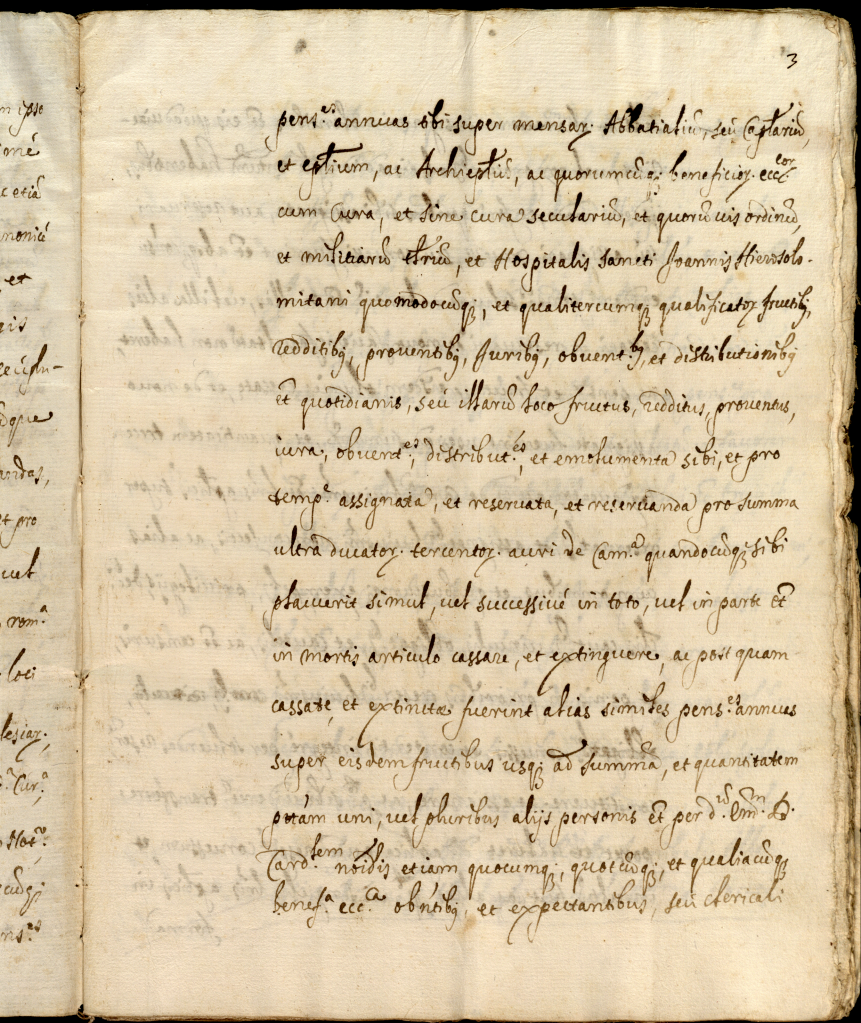 3
n ipse
pens.es annuas sibi super mensar. Abbatialiũ, seu Caplariũ,
et eplium, ac Archiepliũ, ac quorumcũq; beneficior. eccl.cor
cetiã
cum Cura, et sine cura seculariũ, et quorũuis ordinũ,
nonicũ
et militiarũ etriũ, et Hospitalis Sancti Joannis Hierosolo-
et
mitani quomodocũq;, et qualitercumq; qualificator. fructib9,
redditib9, prouentib9, Juribus, obuent.b9, et distributionib9
et̃ quotidianis, seu illarũ loco fructus, redditus, prouentus,
dque
iura, obuent.es, distribut.es, et emolumenta sibi, et pro
andas,
temp.e assignata, et reseruata, et reseruanda pro summa
et pro
ultra ducator. tercentor. auri de Cam.a quandocũq; sibi
uel
placuerit simul, uel successiué in toto, uel in parte et̃
rom.a
in mortis articulo cassare, et extinguere, ac post quam
loci
cassate, et extinctæ fuerint alias similes pens.es annuas
lesiar.,
super eisdem fructibus usq; ad summã, et quantitatem
Cur.a
ptãm uni, uel pluribus alijs personis et̃ per d.um Em.m D.
Not.o
Card.lem noĩdis etiam quocumq;, quotcũq;, et qualiacũq;
cũq;
benef.a ecc.ca obñtib9, et expectantibus, seu clericali
ns.es